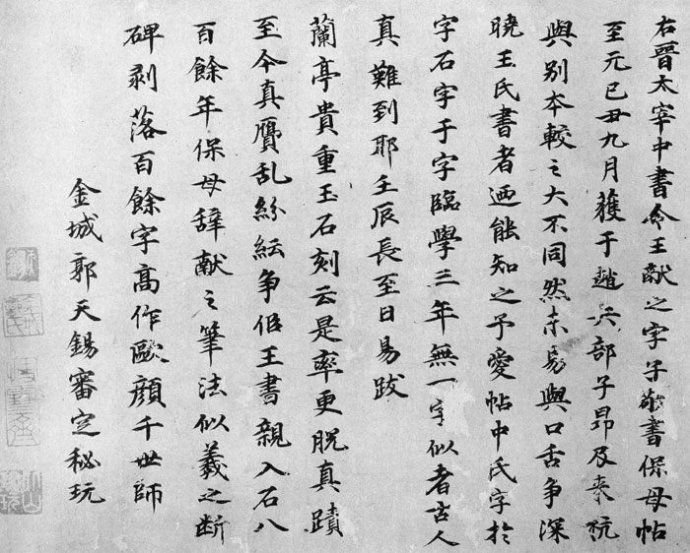 右晉太宰中書令王獻之字子敬書保母帖
至元己丑九月獲于趙兵部子昂及來杭
與別本較之大不同然未易與口舌爭深
曉王氏書者迺能知之予愛帖中氏字於
字石字于字臨學三年無一字似者古人
真難到耶壬辰長至日易跋
蘭亭貴重玉石刻云是率更脫真蹟
至今真贋乱紛紜争似王書親入石八
百餘年保母辞献之筆法似羲之断
碑剥落百餘字高作歐顔千世師
金城郭天錫審定秘玩